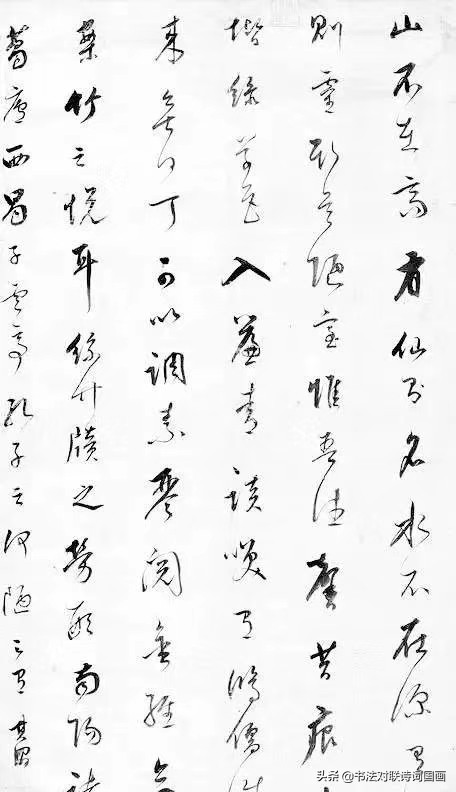 山不在高有仙則名水不在深有
則靈斯是陋室惟吾德馨苔痕
堦綠草色入簾青談笑有鴻儒往
來無白丁可以調素琴閱金經無
竹之耳牘之勞形南陽諸
葛廬西蜀子雲亭孔子云何陋之有 其昌
头条 @书法对联诗词国画